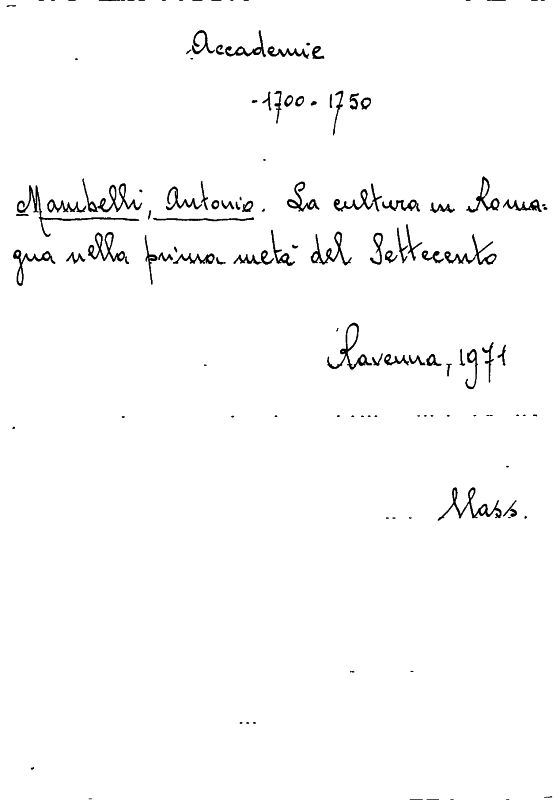 Accademie
-1700-1750
Mambelli, Antonio. La cultura in Roma=
gna nella prima metà del Settecento
Ravenna, 1971
Mass.